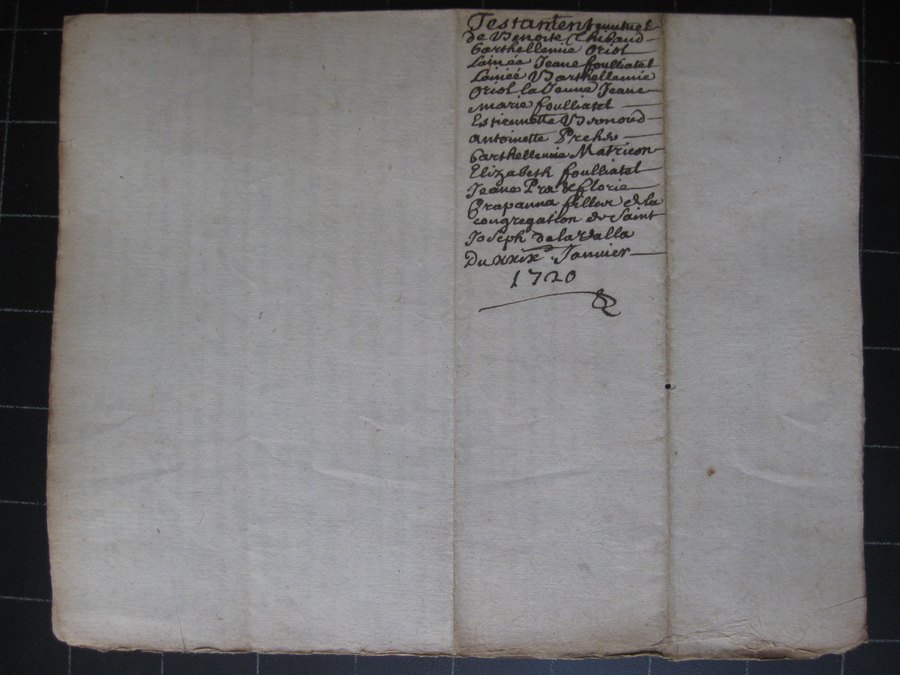 Testament mutuel
de Benoite Thibaud
Barthellemie Oriol
Lainée Jeane foulliatel
Lainéé Barthellemie
Oriol la Jeune Jeane
marie foulliatel
Estiennette
antoinette
Barthellemie Matricon
Elizabeth foulliatel
Jeane Pra & florie
Prapanna filles de la
congregation de Saint
Joseph de la Valla
Du xxix Janvier
1720